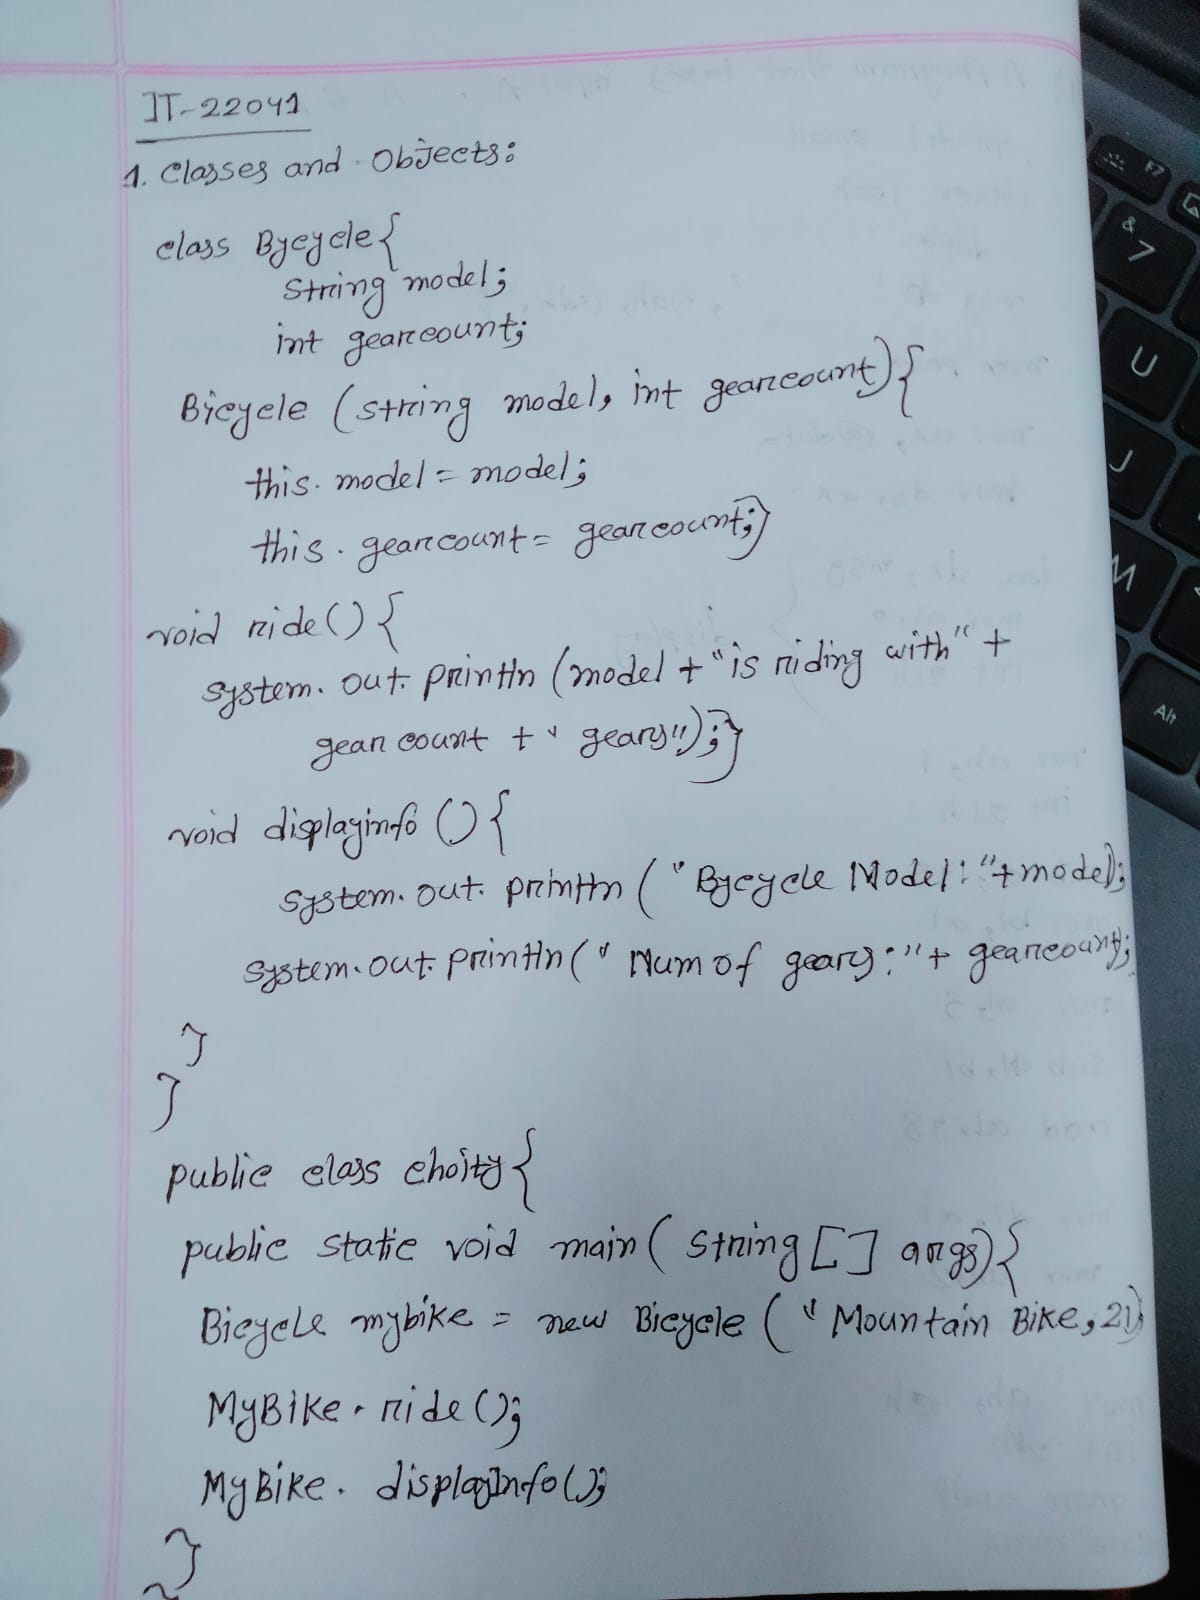 IT-22041
1. Classes and Objects:
class Bycycle{
String model;
int gearcount;
Bicycle (string model, int gearcount){
this.model = model;
this.gearcount = gearcount;}
void ride(){
system.out.println (model + "is riding with" +
gear count + " gears");}
void displayinfo (){
system.out.println ("Bycycle Model: "+model);
system.out.println (" Num of gears: "+ gearcount);
}
}
public class choity{
public static void main( string [] args){
Bicycle mybike = new Bicycle (" Mountain Bike, 21);
MyBike.ride();
MyBike.displayInfo();
}
}
F7
&
7
U
J
M
Alt